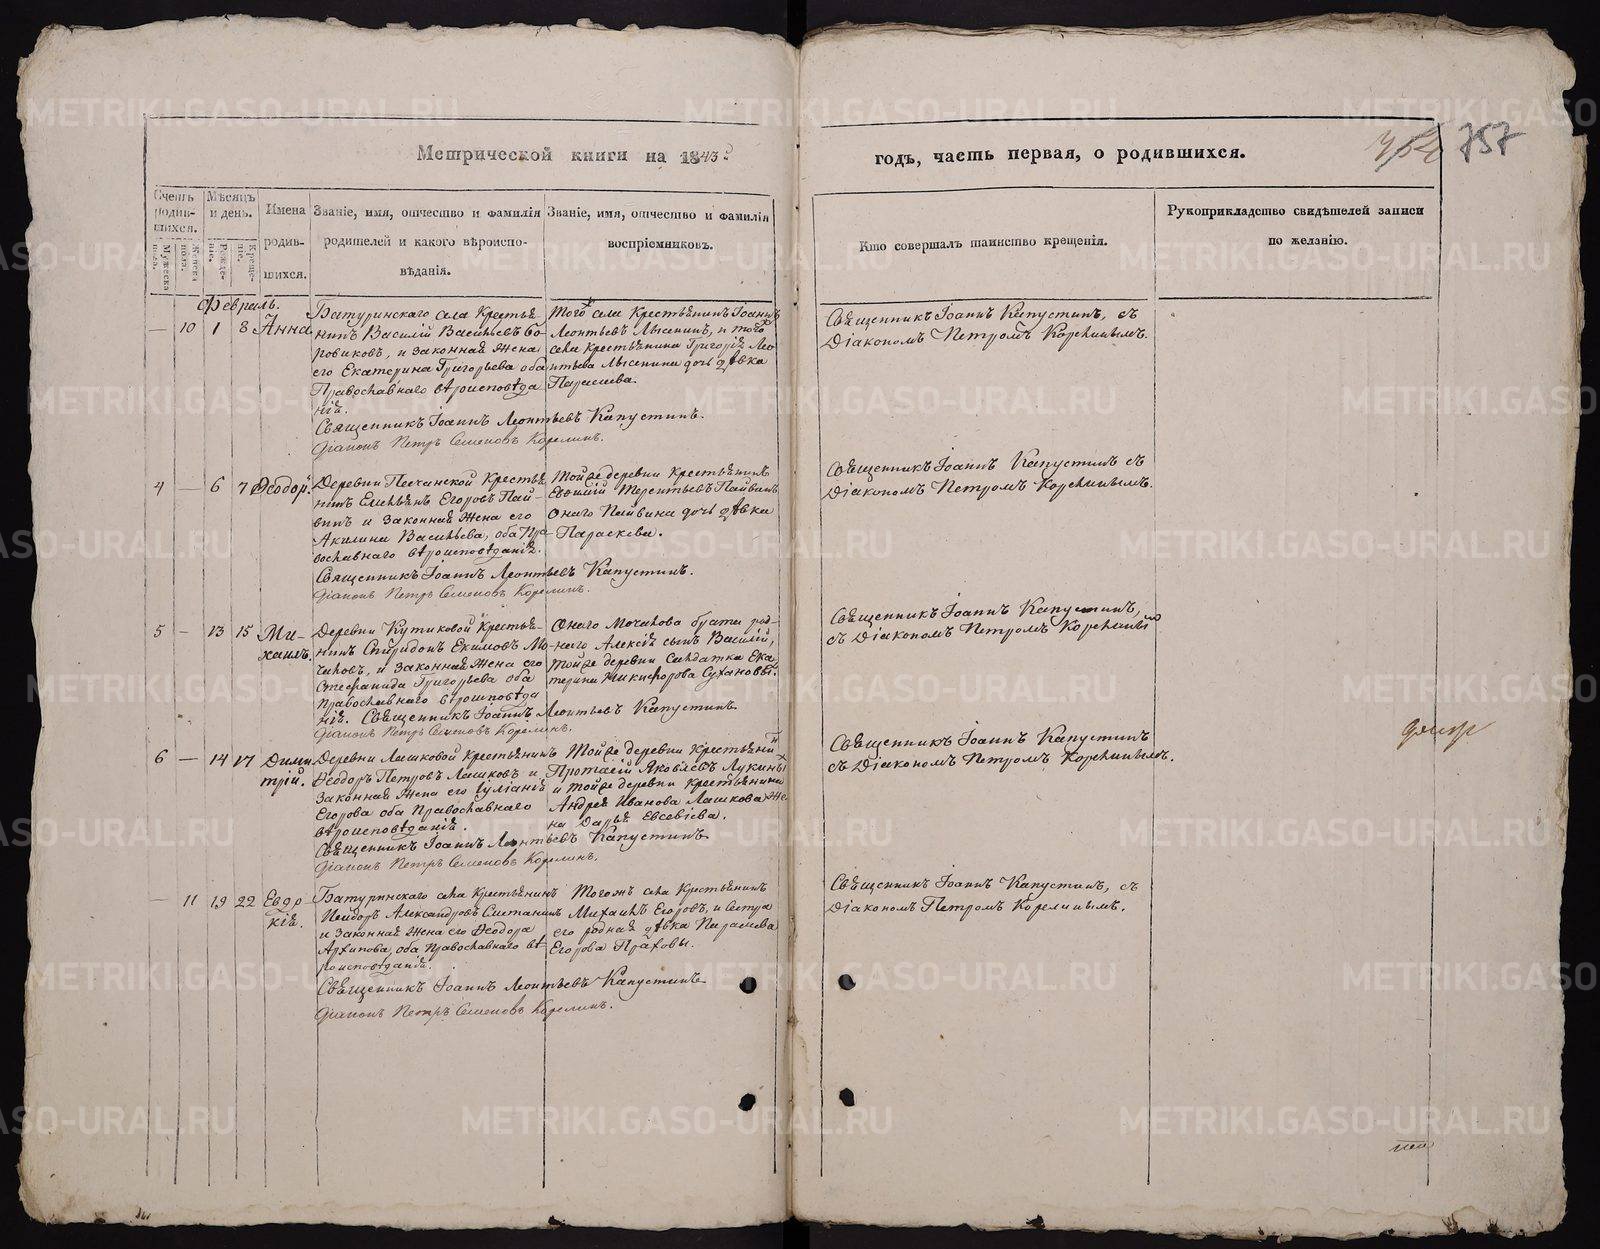 Метрической книги на 1843й
годъ, часть первая, о родившихся.
757
Счетъ родившихся.
Мужеска пола.
Женска пола.
Мѣсяцъ и день.
Рожденіе.
Крещеніе.
Имена родившихся.
Званіе, имя, отчество и фамилія
родителей и какого вѣроиспо-
вѣданія.
Званіе, имя, отчество и фамилія
воспріемниковъ.
Кто совершалъ таинство крещенія.
Рукоприкладство свидѣтелей записи
по желанію.
Февраль.
— 10 1 8 Анна
Батуринскаго села Крестья
нинъ Василій Васильевъ Бо-
ровиковъ, и законная жена
его Екатерина Григорьева оба
Православнаго вѣроисповѣда
нія.
Священникъ Іоаннъ Леонтьевъ Капустинъ.
Діаконъ Петръ Семеновъ Корелинъ.
Того села Крестьянинъ Іоаннъ
Леонтьевъ Лысенинъ, и того
села крестьянина Григорія Лео
нтьева Лысенина дочь дѣвка
Параскева.
Священникъ Іоаннъ Капустинъ, съ
Діакономъ Петромъ Корелинымъ.
4 — 6 7 Ѳеодоръ.
Деревни Песчанской Крестья
нинъ Емельянъ Егоровъ Пай-
винъ и законная жена его
Акилина Васильева, оба Пра-
вославнаго вѣроисповѣданія.
Священникъ Іоаннъ Леонтьевъ Капустинъ.
Діаконъ Петръ Семеновъ Корелинъ.
Тойже деревни Крестьянинъ
Евѳимій Терентьевъ Пайвинъ
Онаго Пайвина дочь дѣвка
Параскева.
Священникъ Іоаннъ Капустинъ съ
Діакономъ Петромъ Корелинымъ.
5 — 13 15 Ми-
хаилъ.
Деревни Кутиковой Крестья-
нинъ Спиридонъ Екимовъ Мо-
чаловъ, и законная жена его
Стефанида Григорьева оба
Православнаго вѣроисповѣда
нія. Священникъ Іоаннъ Леонтьевъ Капустинъ.
Діаконъ Петръ Семеновъ Корелинъ.
Онаго Мочалова брата род-
наго Алексія сынъ Василій,
Тойже деревни Солдатка Ека
терина Никифорова Суханова.
Священникъ Іоаннъ Капустинъ,
съ Діакономъ Петромъ Корелинымъ
6 — 14 17 Дими
трій.
Деревни Лашковой Крестьянинъ
Ѳеодоръ Петровъ Лашковъ и
законная жена его Іуліанія
Егорова оба Православнаго
вѣроисповѣданія.
Священникъ Іоаннъ Леонтьевъ Капустинъ
Діаконъ Петръ Семеновъ Корелинъ.
Тойже деревни Крестьянинъ
Протасій Яковлевъ Лукинъ
и тойже деревни крестьянина
Андрея Иванова Лашкова же
на Дарья Евсевіева.
Священникъ Іоаннъ Капустинъ
съ Діакономъ Петромъ Корелинымъ.
— 11 19 22 Евдо
кія.
Батуринскаго села Крестьянинъ
Исидоръ Александровъ Сметанинъ
и законная жена его Ѳеодора
Архипова, оба Православнаго вѣ-
роисповѣданія.
Священникъ Іоаннъ Леонтьевъ Капустинъ
Діаконъ Петръ Семеновъ Корелинъ.
Тогожъ села Крестьянинъ
Михаилъ Егоровъ, и Сестра
его родная дѣвка Параскева
Егорова Праховы.
Священникъ Іоаннъ Капустинъ, съ
Діакономъ Петромъ Корелинымъ.
METRIKI.GASO-URAL.RU